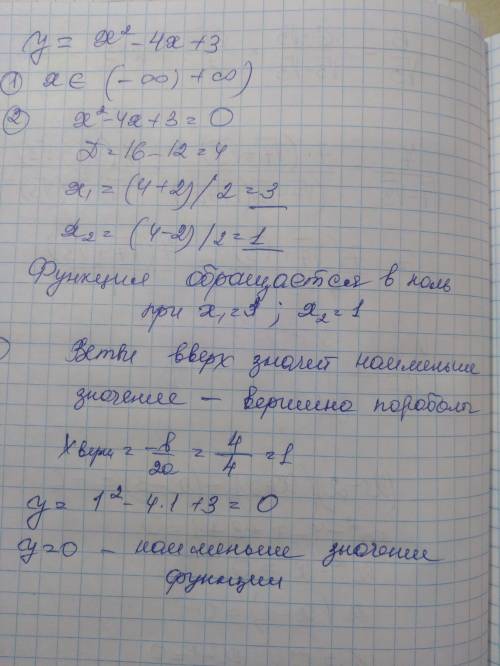 y = x² - 4x + 3
① x ∈ (-∞; +∞)
② x² - 4x + 3 = 0
D = 16 - 12 = 4
x₁ = (4+2)/2 = 3
x₂ = (4-2)/2 = 1
Функция обращается в ноль
при x₁=3 ; x₂=1
Ветви вверх значит наименьше
значение – вершина параболы
X верш = -b/2a = 4/4 = 1
y = 1² - 4·1 + 3 = 0
y=0 – наименьше значение
функции